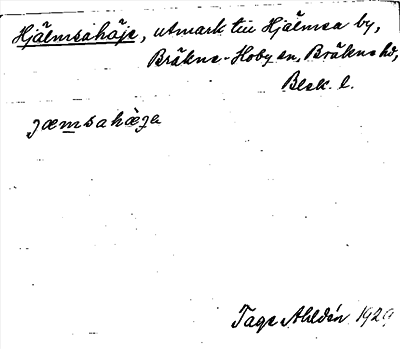 Hjälmsahäje, utmark till Hjälmsa by,
Bräkne-Hoby sn, Bräkne hd,
Blek. l.
jæmsahæja
Tage Ahldén 1929